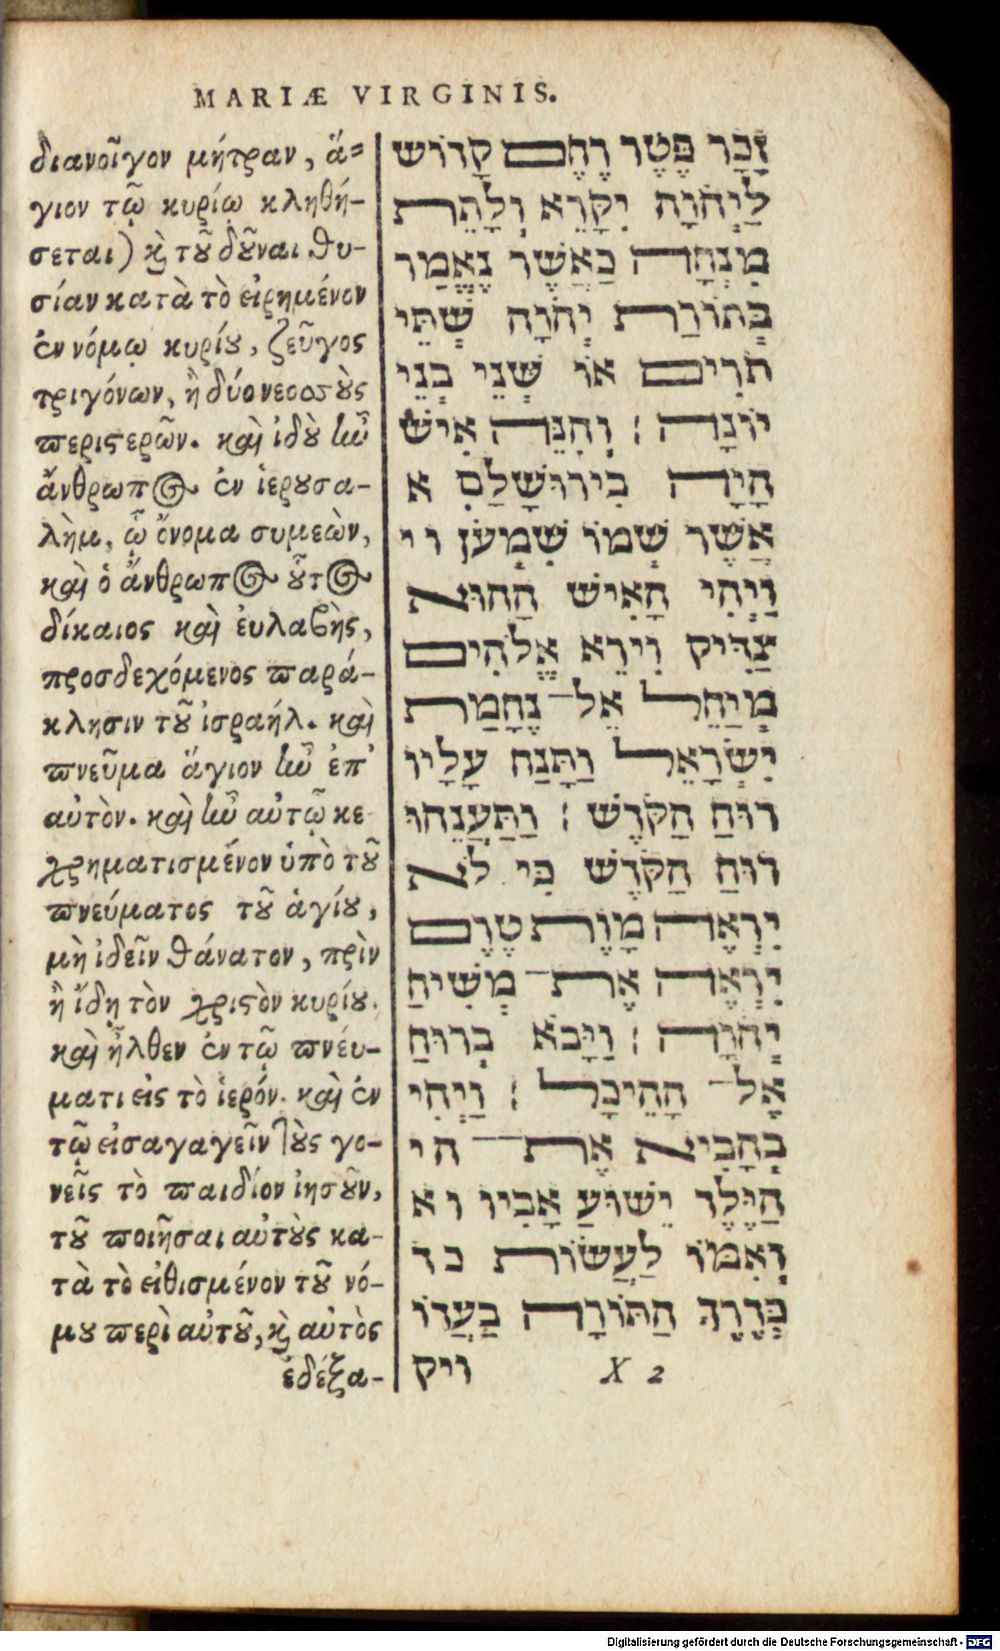 MARIÆ VIRGINIS.
διανοῖγον μήτραν, ἅ=
γιον τῷ κυρίῳ κληθή-
σεται) κỳ τοῦ δοῦναι θυ-
σίαν κατὰ τὸ εἰρημένον
ἐν νόμῳ κυρίου, ζεῦγος
τριγόνων, ἢ δύο νεοσσοὺς
περιστερῶν. καὶ ἰδοὺ ἦν
ἄνθρωπος ἐν ἱερουσα-
λὴμ, ᾧ ὄνομα συμεὼν,
καὶ ὁ ἄνθρωπος οὗτος
δίκαιος καὶ ἐυλαβὴς,
προσδεχόμενος παρά-
κλησιν τοῦ ἰσραήλ. καὶ
πνεῦμα ἅγιον ἦν ἐπ'
αὐτὸν. καὶ ἦν αὐτῷ κε
χρηματισμένον ὑπὸ τοῦ
πνεύματος τοῦ ἁγίου,
μὴ ἰδεῖν θάνατον, πρὶν
ἢ ἴδῃ τὸν χριστὸν κυρίου.
καὶ ἦλθεν ἐν τῷ πνέυ-
ματι εἰς τὸ ἱερόν. καὶ ἐν
τῷ εἰσαγαγεῖν τοὺς γο-
νεῖς τὸ παιδίον ἰησοῦν,
τοῦ ποιῆσαι αὐτοὺς κα-
τὰ τὸ εἰθισμένον τοῦ νό-
μου περὶ αὐτοῦ, κỳ αὐτὸς
ἐδέξα-
זָכָר פֶּטֶר רֶחֶם קָדוֹשׁ
לַיְהֹוָה יִקָּרֵא וְלָתֵת
מִנְחָה כַּאֲשֶׁר נֶאֱמַר
בְּתוֹרַת יְהֹוָה שְׁתֵּי
תֹרִים אוֹ שְׁנֵי בְנֵי
יוֹנָה : וְהִנֵּה אִישׁ
הָיָה בִּירוּשָׁלַםִ א
אֲשֶׁר שְׁמוֹ שִׁמְעֹן וי
וַיְהִי הָאִישׁ הַהוּא
צַדִּיק וִירֵא אֱלֹהִים
מְיַחֵל אֵל־ נֶחָמַת
יִשְׂרָאֵל וַתָּנַח עָלָיו
רוּחַ הַקֹּדֶשׁ : וַתַּעֲנֵהוּ
רוּחַ הַקֹּדֶשׁ כִּי לֹא
יִרְאֶה מָוֶת טֶרֶם
יִרְאֶה אֶת־ מְשִׁיחַ
יְהֹוָה : וַיָּבֹא בְרוּחַ
אֶל־ הַהֵיכָל : וַיְהִי
בְּהָבִיא אֶת־ הי
הַיֶּלֶד יֵשׁוּעַ אָבִיו וא
וְאִמּוֹ לַעֲשׂוֹת כד
כְּדֶרֶךְ הַתּוֹרָה בַּעֲדוֹ
ויק
X 2
Digitalisierung gefördert durch die Deutsche Forschungsgemeinschaft - DFG